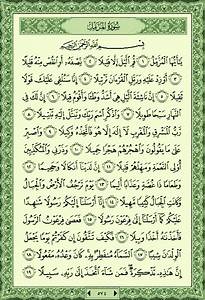 سُورَةُ الْمُزَّمِّل
بِسْمِ ٱللَّهِ ٱلرَّحْمَٰنِ ٱلرَّحِيمِ
يَٰٓأَيُّهَا ٱلْمُزَّمِّلُ ١ قُمِ ٱلَّيْلَ إِلَّا قَلِيلًا ٢ نِّصْفَهُۥٓ أَوِ ٱنقُصْ مِنْهُ قَلِيلًا
٣ أَوْ زِدْ عَلَيْهِ وَرَتِّلِ ٱلْقُرْءَانَ تَرْتِيلًا ٤ إِنَّا سَنُلْقِى عَلَيْكَ قَوْلًا
ثَقِيلًا ٥ إِنَّ نَاشِئَةَ ٱلَّيْلِ هِىَ أَشَدُّ وَطْـًٔا وَأَقْوَمُ قِيلًا ٦ إِنَّ لَكَ فِى
ٱلنَّهَارِ سَبْحًا طَوِيلًا ٧ وَٱذْكُرِ ٱسْمَ رَبِّكَ وَتَبَتَّلْ إِلَيْهِ تَبْتِيلًا ٨
رَّبُّ ٱلْمَشْرِقِ وَٱلْمَغْرِبِ لَآ إِلَٰهَ إِلَّا هُوَ فَٱتَّخِذْهُ وَكِيلًا ٩ وَٱصْبِرْ
عَلَىٰ مَا يَقُولُونَ وَٱهْجُرْهُمْ هَجْرًا جَمِيلًا ١٠ وَذَرْنِى وَٱلْمُكَذِّبِينَ
أُو۟لِى ٱلنَّعْمَةِ وَمَهِّلْهُمْ قَلِيلًا ١١ إِنَّ لَدَيْنَآ أَنكَالًا وَجَحِيمًا ١٢
وَطَعَامًا ذَا غُصَّةٍ وَعَذَابًا أَلِيمًا ١٣ يَوْمَ تَرْجُفُ ٱلْأَرْضُ وَٱلْجِبَالُ
وَكَانَتِ ٱلْجِبَالُ كَثِيبًا مَّهِيلًا ١٤ إِنَّآ أَرْسَلْنَآ إِلَيْكُمْ رَسُولًا شَٰهِدًا
عَلَيْكُمْ كَمَآ أَرْسَلْنَآ إِلَىٰ فِرْعَوْنَ رَسُولًا ١٥ فَعَصَىٰ فِرْعَوْنُ ٱلرَّسُولَ
فَأَخَذْنَٰهُ أَخْذًا وَبِيلًا ١٦ فَكَيْفَ تَتَّقُونَ إِن كَفَرْتُمْ يَوْمًا يَجْعَلُ
ٱلْوِلْدَٰنَ شِيبًا ١٧ ٱلسَّمَآءُ مُنفَطِرٌۢ بِهِۦ كَانَ وَعْدُهُۥ مَفْعُولًا ١٨
إِنَّ هَٰذِهِۦ تَذْكِرَةٌ فَمَن شَآءَ ٱتَّخَذَ إِلَىٰ رَبِّهِۦ سَبِيلًا ١٩
٥٧٤